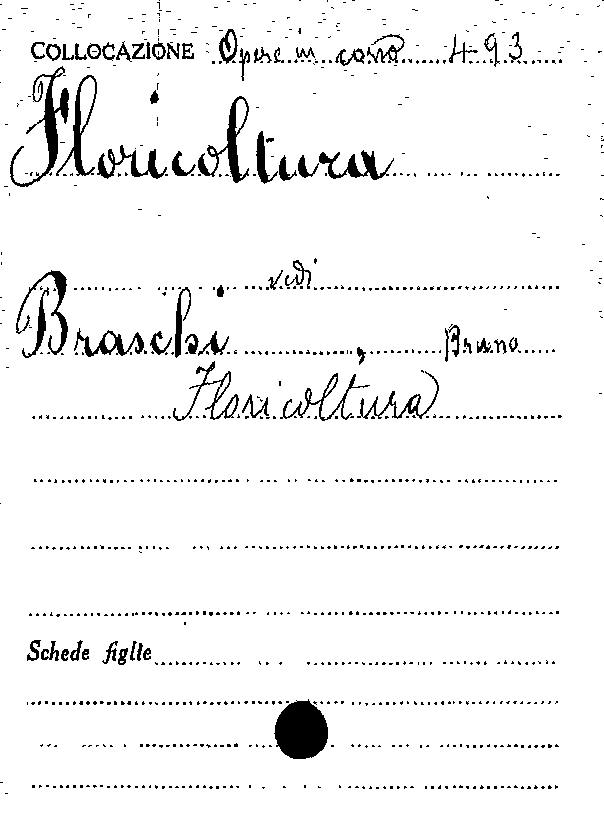 COLLOCAZIONE Opere in corso 493
Floricoltura
vedi
Braschi, Bruno
Floricoltura
Schede figlie